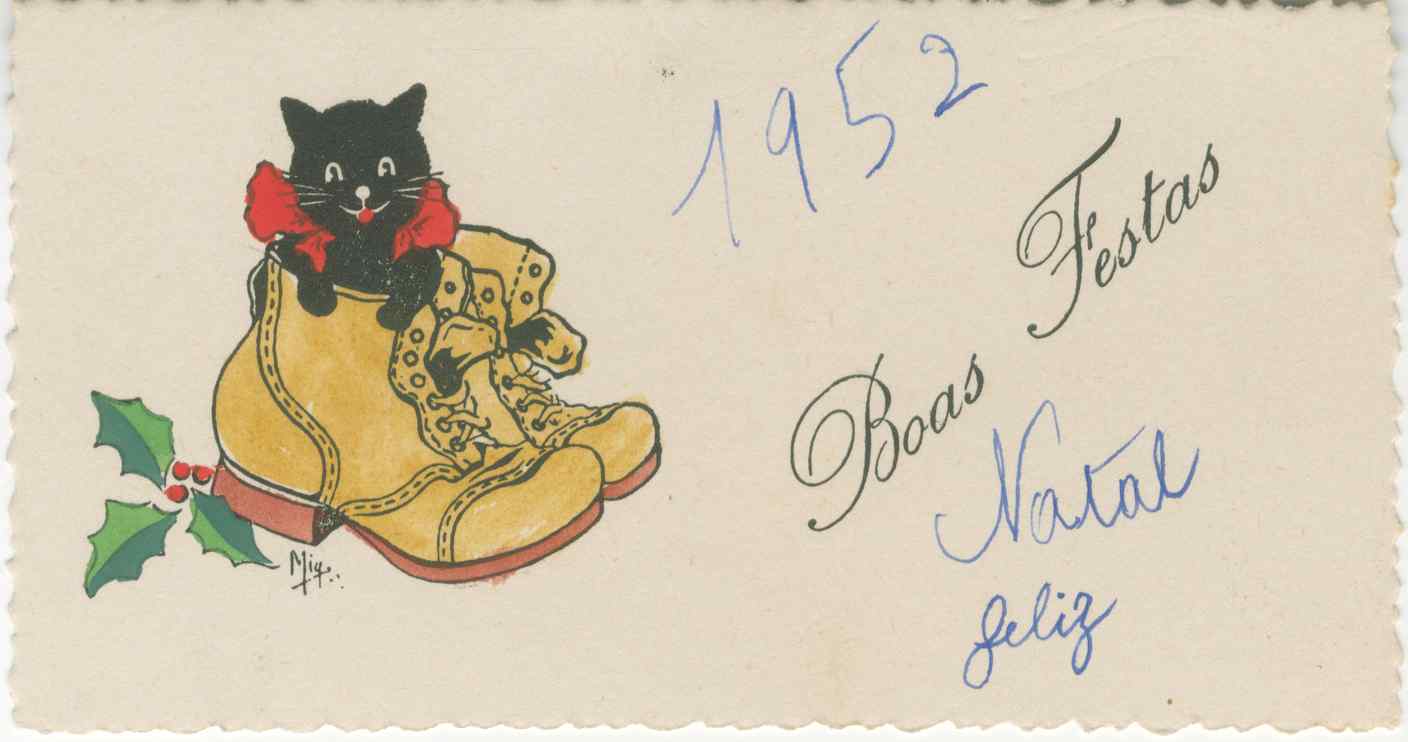 1952
Boas Festas
Natal
feliz
Mig..